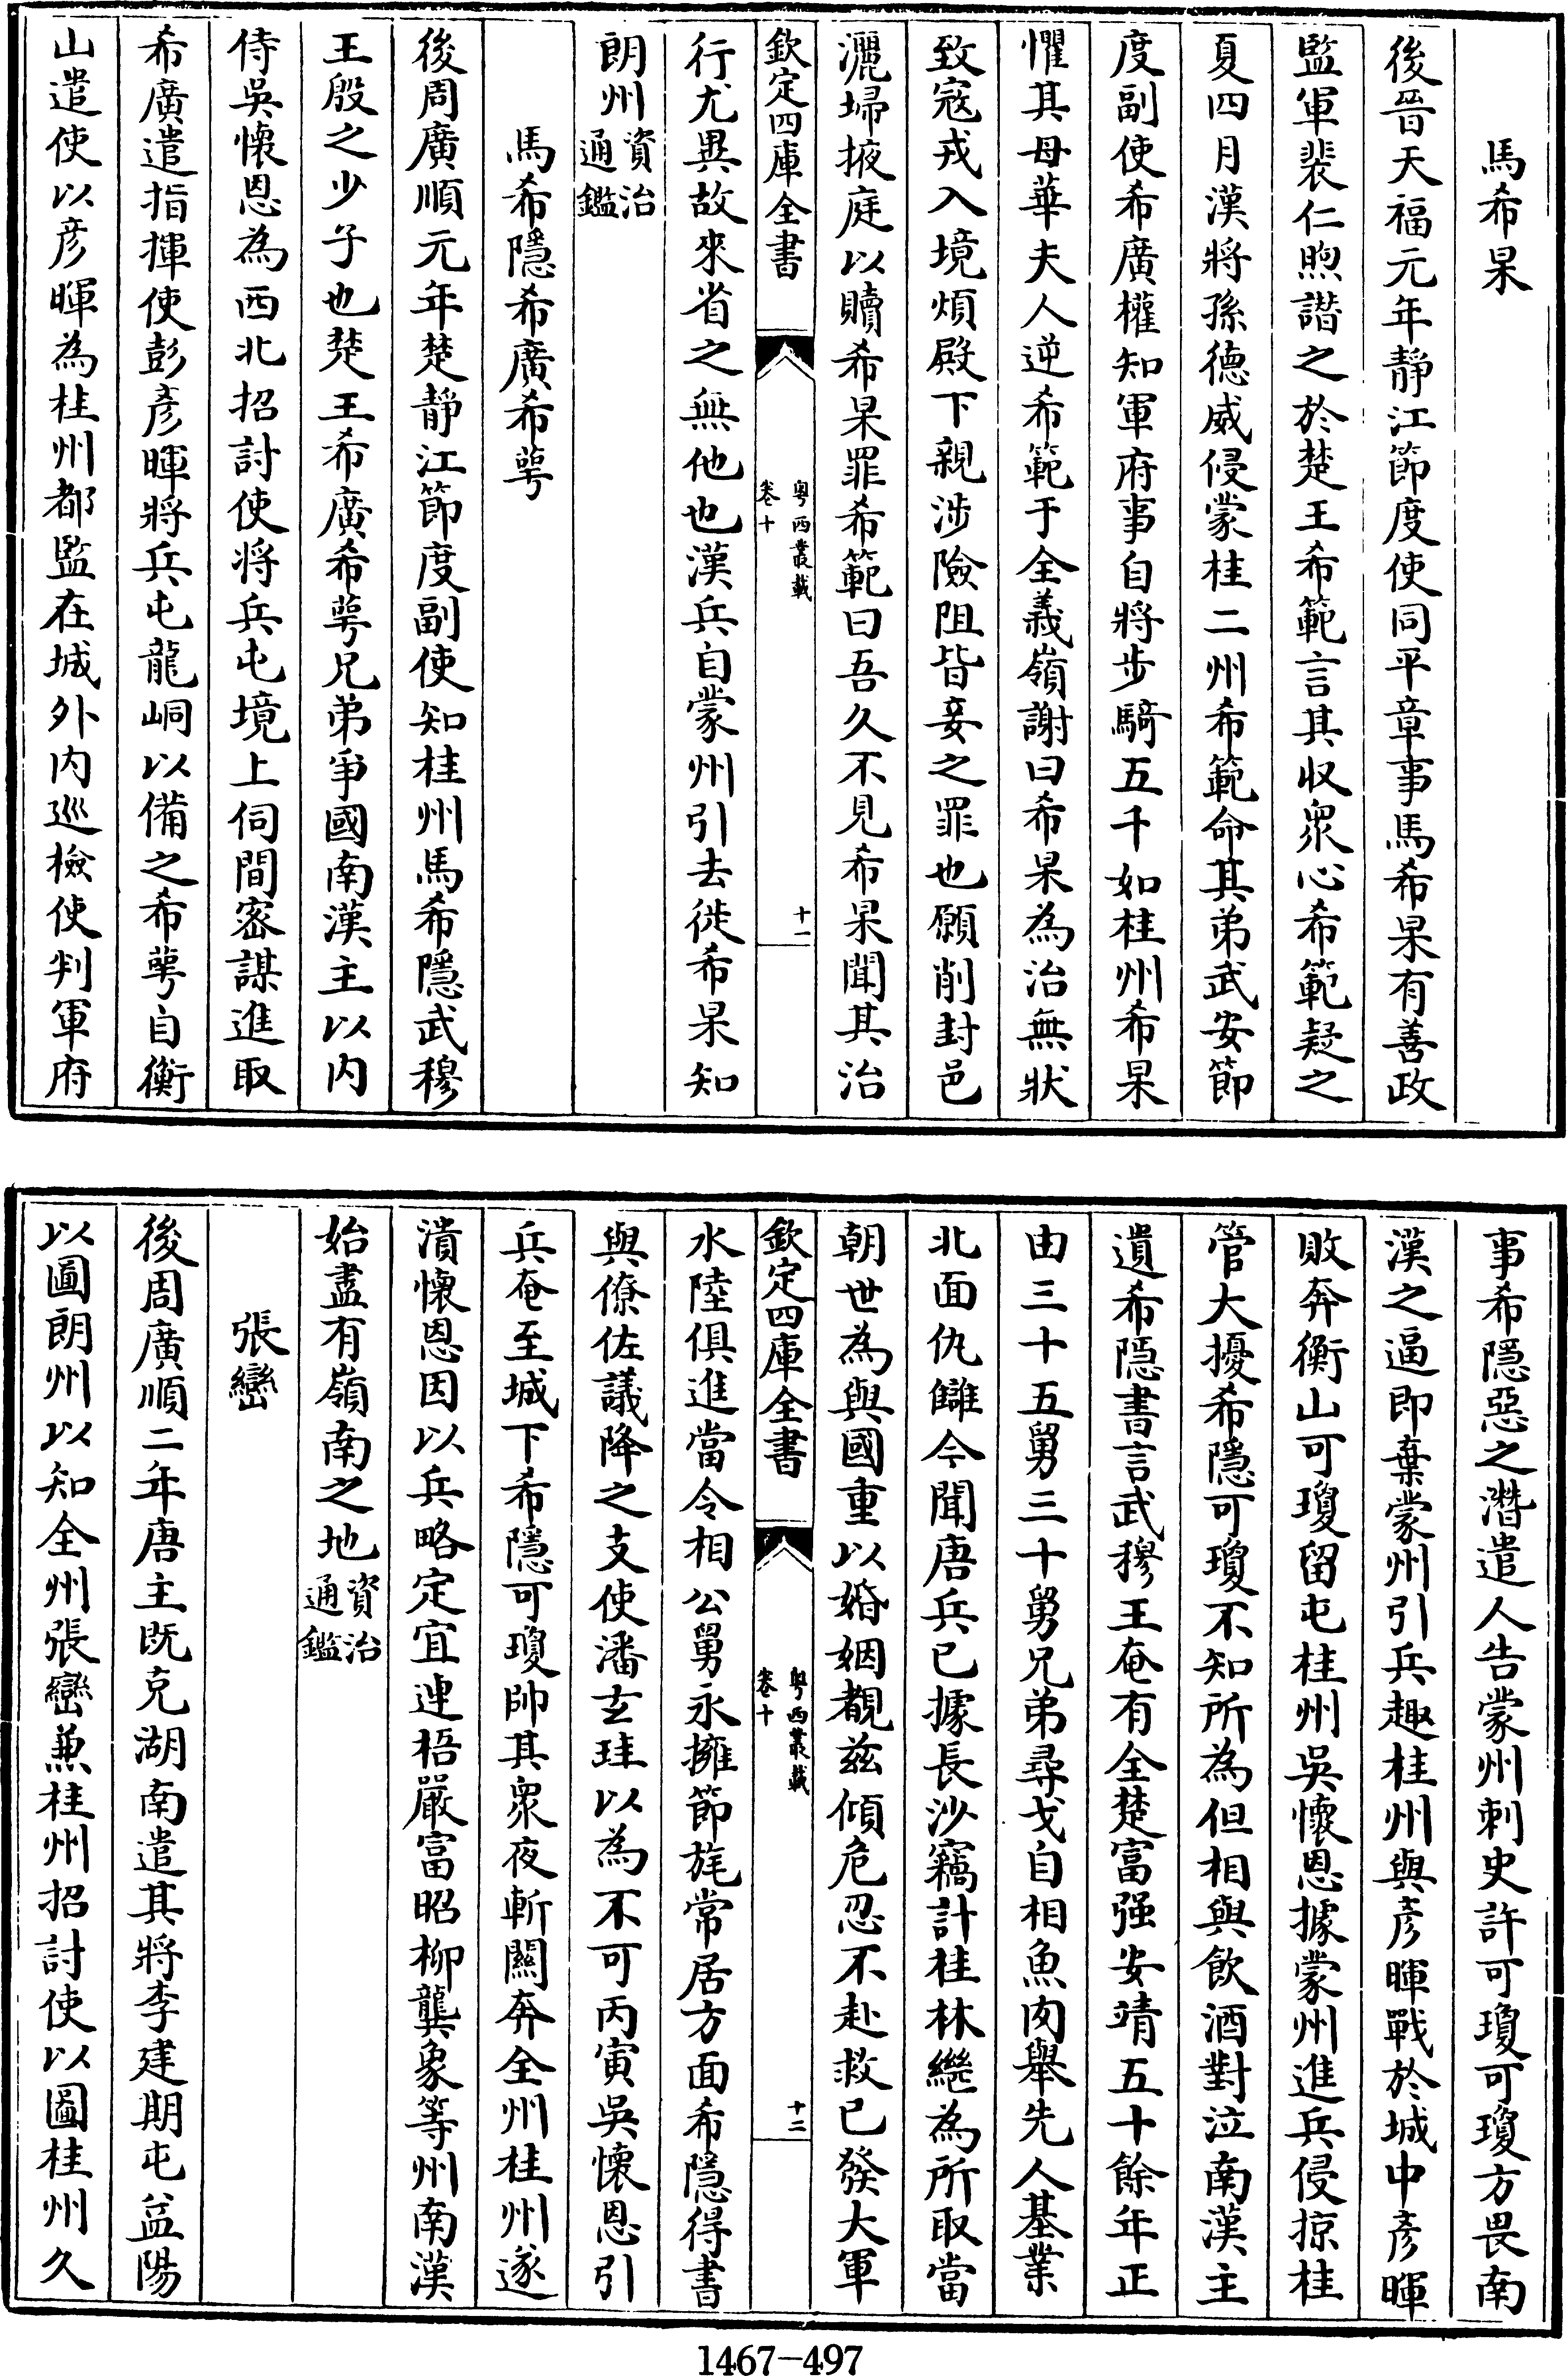 馬希杲
後晉天福元年靜江節度使同平章事馬希杲有善政
監軍裴仁煦譖之於楚王希範言其収衆心希範疑之
夏四月漢將孫德威侵蒙桂二州希範命其弟武安節
度副使希廣權知軍府事自將步騎五千如桂州希杲
懼其母華夫人逆希範于全義嶺謝曰希杲為治無狀
致寇戎入境煩殿下親涉險阻皆妾之罪也願削封邑
灑埽掖庭以贖希杲罪希範曰吾久不見希杲聞其治
欽定四庫全書
粤西叢載
卷十
十一
行尤異故來省之無他也漢兵自蒙州引去徙希杲知
朗州資治通鑑
馬希隱希廣希萼
後周廣順元年楚靜江節度副使知桂州馬希隱武穆
王殷之少子也楚王希廣希萼兄弟爭國南漢主以内
侍吳懷恩為西北招討使將兵屯境上伺間密謀進取
希廣遣指揮使彭彥暉將兵屯龍峒以備之希萼自衡
山遣使以彥暉為桂州都監在城外内巡檢使判軍府
事希隱惡之潛遣人告蒙州刺史許可瓊可瓊方畏南
漢之逼即棄蒙州引兵趣桂州與彥暉戰於城中彥暉
敗奔衡山可瓊留屯桂州吳懷恩據蒙州進兵侵掠桂
管大擾希隱可瓊不知所為但相與飲酒對泣南漢主
遺希隱書言武穆王奄有全楚富强安靖五十餘年正
由三十五舅三十舅兄弟尋戈自相魚肉舉先人基業
北面仇讎今聞唐兵已據長沙竊計桂林繼為所取當
朝世為與國重以婚姻覩兹傾危忍不赴救已發大軍
欽定四庫全書
粤西叢載
卷十
十二
水陸俱進當令相公舅永擁節旄常居方面希隱得書
與僚佐議降之支使潘玄珪以為不可丙寅吳懷恩引
兵奄至城下希隱可瓊帥其衆夜斬關奔全州桂州遂
潰懷恩因以兵略定宜連梧嚴富昭柳龔象等州南漢
始盡有嶺南之地資治通鑑
張巒
後周廣順二年唐主既克湖南遣其將李建期屯益陽
以圖朗州以知全州張巒兼桂州招討使以圖桂州久
1467-497